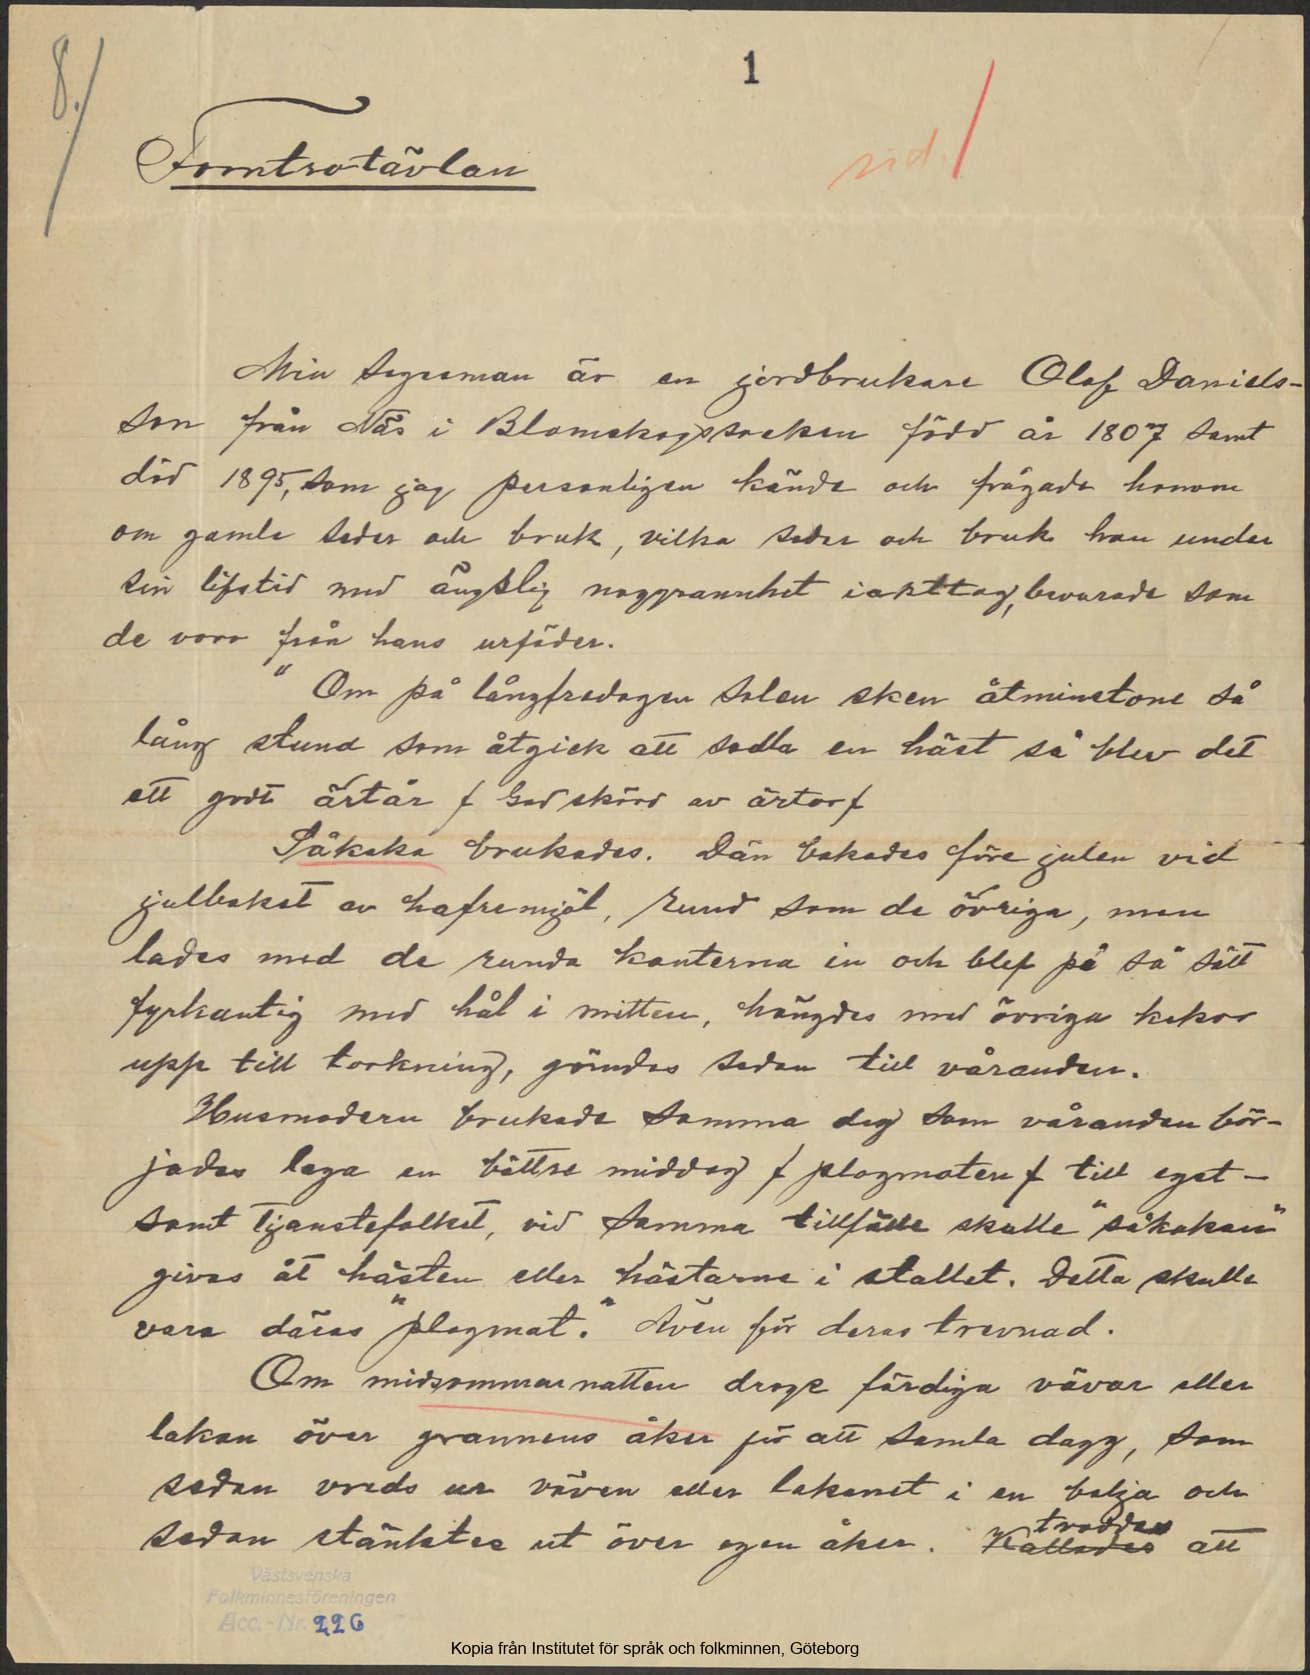 8./
1
sid. 1
Forntrotävlan
Min sagesman är en jordbrukare Olof Daniels-
son från Näs i Blomskogssocken född år 1807 samt
död 1895, som jag personligen kände och frågade honom
om gamla seder och bruk, vilka seder och bruk han under
sin lifstid med ängslig noggrannhet iakttog, bevarade som
de voro från hans urfäder.
" Om på långfredagen solen sken åtminstone så
lång stund som åtgick att sadla en häst så blev det
ett godt ärtår / God skörd av ärtor /
Såkaka brukades. Dän bakades före julen vid
julbaket av hafremjöl, rund som de övriga, men
lades med de runda kanterna in och blef på så sätt
fyrkantig med hål i mitten, hängdes med övriga kakor
upp till torkning, gömdes sedan till våranden.
Husmodern brukade samma dag som våranden bör-
jades laga en bättre middag / plogmaten / till eget-
samt tjänstefolket, vid samma tillfälle skulle "såkakan"
givas åt hästen eller hästarne i stallet. Detta skulle
vara däras "plogmat." Även för deras trevnad.
Om midsommarnatten drogs färdiga vävar eller
lakan över grannens åker för att samla dagg, som
sedan vreds ur väven eller lakanet i en balja och
troddes
sedan stänktes ut över egen åker. Kallades att
Västsvenska
Folkminnesföreningen
Acc.-Nr. 226
Kopia från Institutet för språk och folkminnen, Göteborg